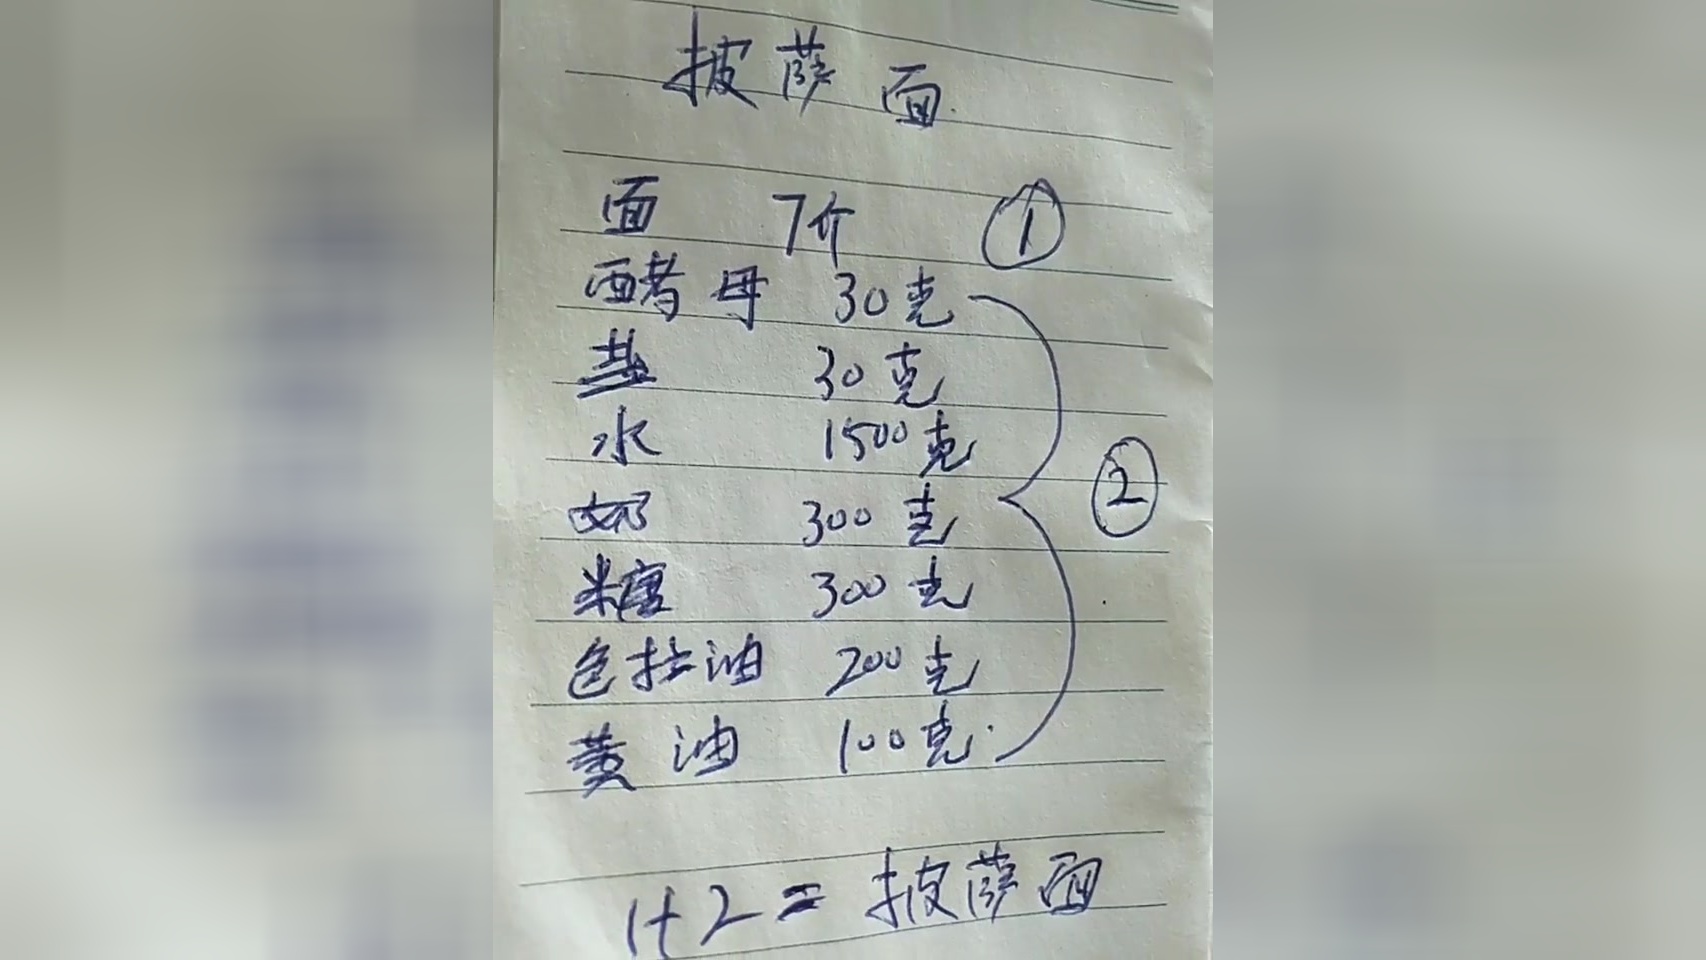 披萨面
面 7斤 ①
酵母 30克
盐 30克
水 1500克
奶 300克 ②
糖 300克
色拉油 200克
黄油 100克
1+2=披萨面